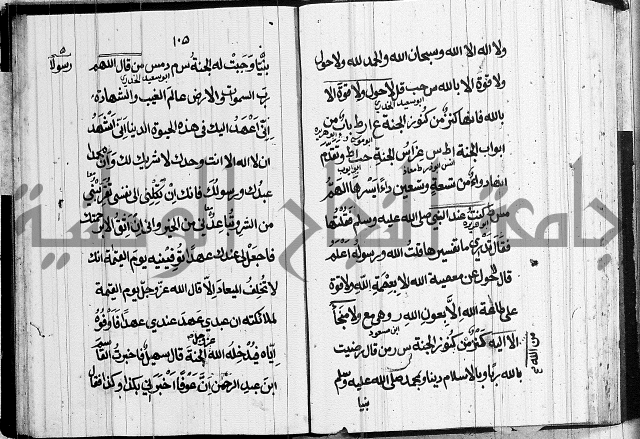 ولا اله الا الله وسبحان الله والحمد لله ولا حول
ولا قوة الا بالله س حب قل لا حول ولا قوة الا
ابو سعيد الخدري
بالله فانها كنز من كنوز الجنة ع ا ر ط باب من
ابواب الجنة ا ط س غراس الجنة حب ا ط وتقدم
انها دواء من تسعة وتسعين داء ايسرها الهم
مس ط كنت عند النبي صلى الله عليه وسلم فقلتها
فقال تدري ما تفسيرها قلت الله ورسوله اعلم
قال لا حول عن معصية الله الا بعصمة الله ولا قوة
على طاعة الله الا بعون الله ر وهي مع ولا منجأ
من الله
الا اليه كنز من كنوز الجنة س ر من قال رضيت
بالله ربا وبالاسلام دينا وبمحمد صلى الله عليه وسلم
نبيا
١٠٥
رسولا
نبيا وجبت له الجنة س م د مص من قال اللهم
ابو سعيد الخدري
رب السموات والارض عالم الغيب والشهادة
اني اعهد اليك في هذه الحيوة الدنيا اني اشهد
ان لا اله الا انت وحدك لا شريك لك وان محمدا
عبدك ورسولك فانك ان تكلني الى نفسي تقربني
من الشر وتباعدني من الخير واني لا اثق الا برحمتك
فاجعل لي عندك عهدا توفينيه يوم القيمة انك
لا تخلف الميعاد الا قال الله عز وجل يوم القيمة
لملائكته ان عبدي عهد عندي عهدا فاوفوه
اياه فيدخله الله الجنة قال سهيل فاخبرت القاسم
ابن عبد الرحمن ان عوفا اخبرني بكذا وكذا فقال
جامعة النجاح الوطنية